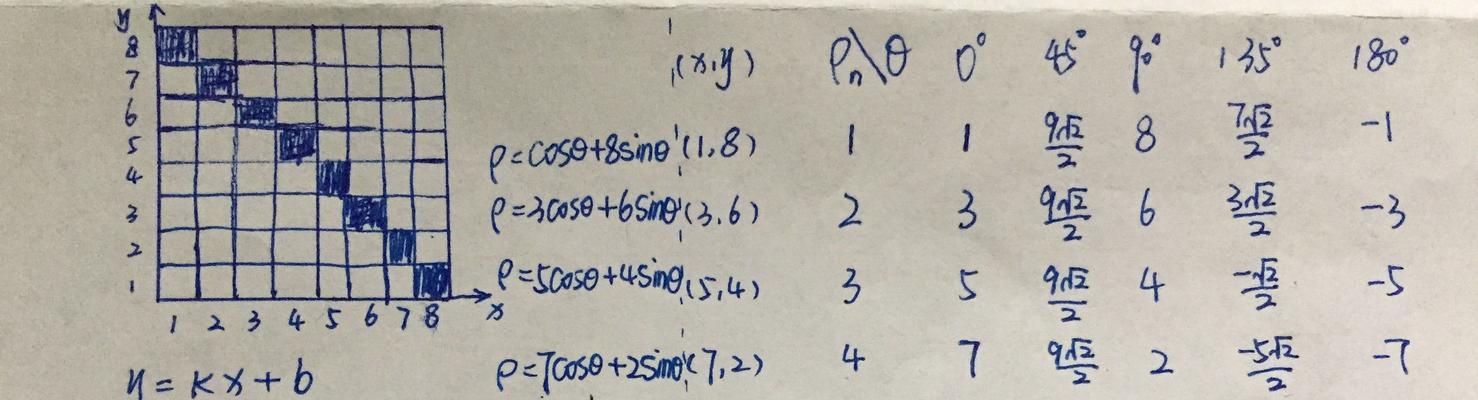 y
8
7
6
5
4
3
2
1
1 2 3 4 5 6 7 8 x
y = kx + b
(x,y) ρₙ\θ 0° 45° 90° 135° 180°
ρ=cosθ+8sinθ (1,8) 1 1 9√2/2 8 7√2/2 -1
ρ=3cosθ+6sinθ (3,6) 2 3 9√2/2 6 3√2/2 -3
ρ=5cosθ+4sinθ (5,4) 3 5 9√2/2 4 -√2/2 -5
ρ=7cosθ+2sinθ (7,2) 4 7 9√2/2 2 -5√2/2 -7